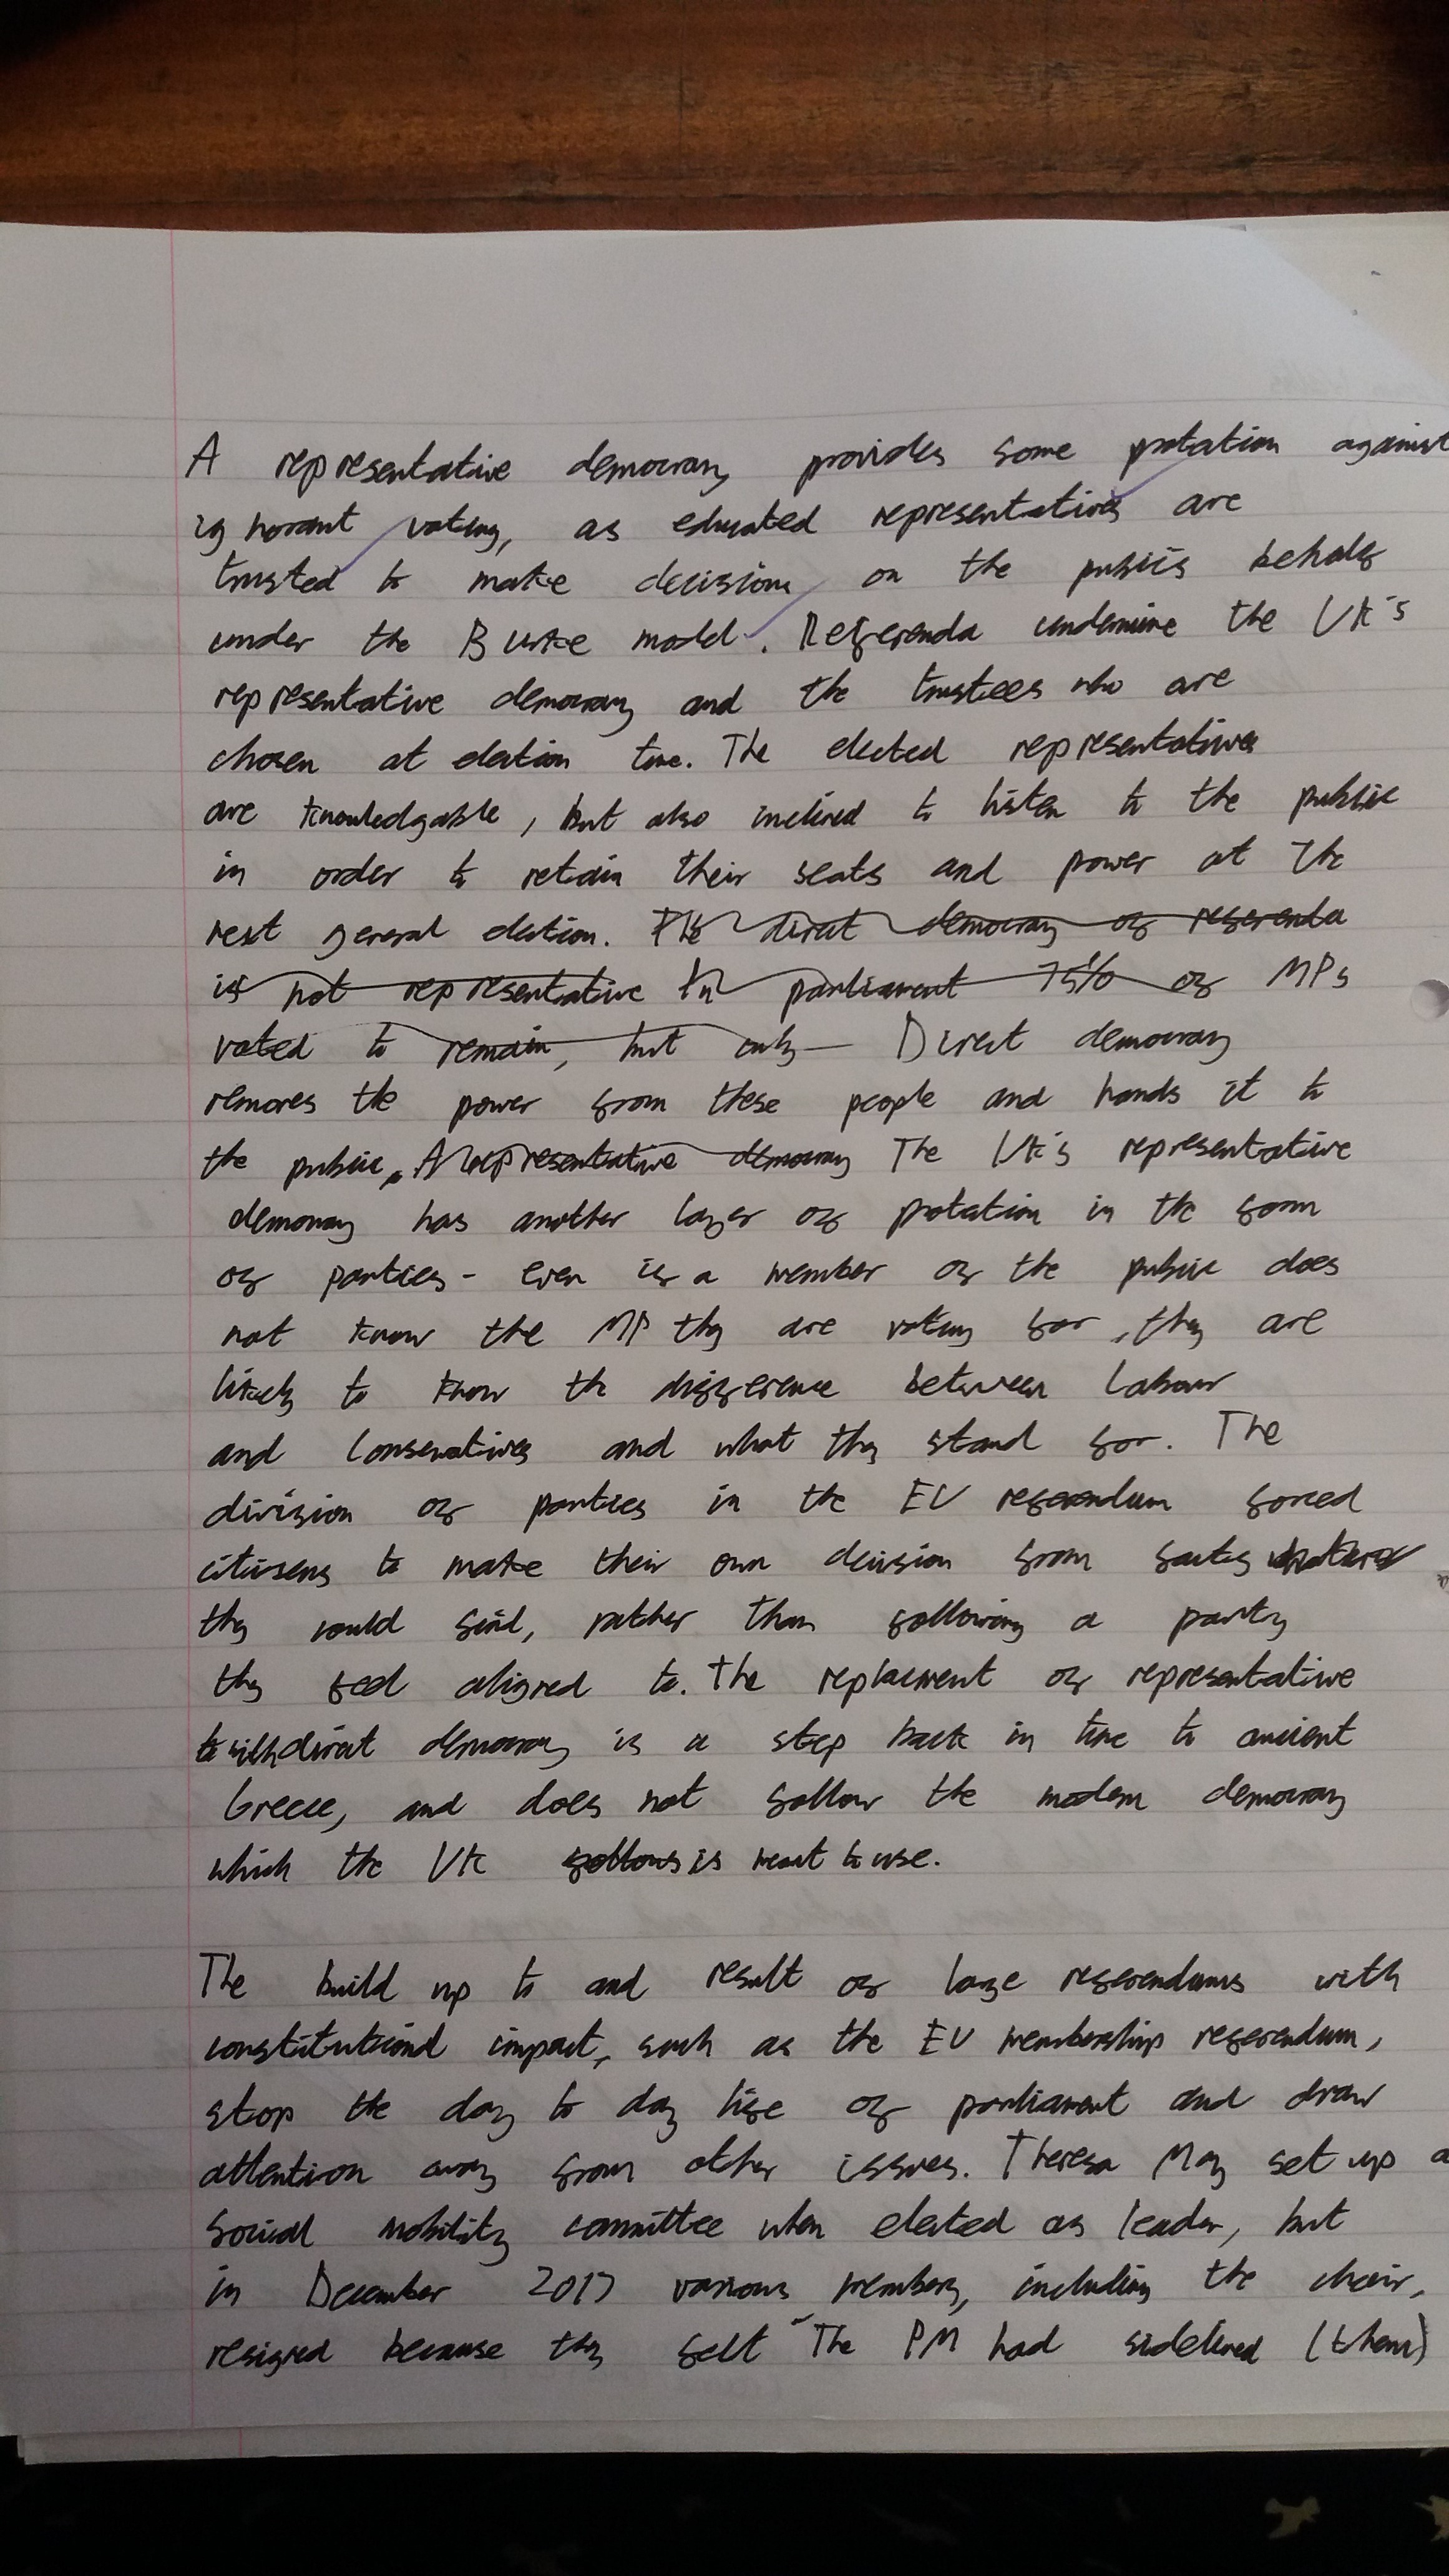 A representative democracy provides some protation against
ignorant voting, as educated representatives are
trusted to make decisions on the publics behalf
under the Burke model. Referenda undermine the UK's
representative democracy and the trustees who are
chosen at election time. The elected representatives
are knowledgable, but also inclined to listen to the public
in order to retain their seats and power at the
next general election. The direct democracy of referenda
is not representative In parliament 75% of MPs
voted to remain, but only Direct democracy
removes the power from these people and hands it to
the public. A representative democracy The UK's representative
democracy has another layer of protation in the form
of parties - even if a member of the public does
not know the MP they are voting for, they are
likely to know the difference between Labour
and Conservatives and what they stand for. The
division of parties in the EU referendum forced
citizens to make their own decision from facts
they could find, rather than following a party
they feel aligned to. The replacment of representative
to with direct democracy is a step back in time to ancient
Greece, and does not follow the modern democracy
which the UK follows is meant to use.
The build up to and result of large referendums with
constitutional impact, such as the EU membership referendum,
stop the day to day life of parliament and draw
attention away from other issues. Theresa May set up a
social mobility committee when elected as leader, but
in December 2017 various members, including the chair,
resigned because they felt "The PM had sidelined (them)